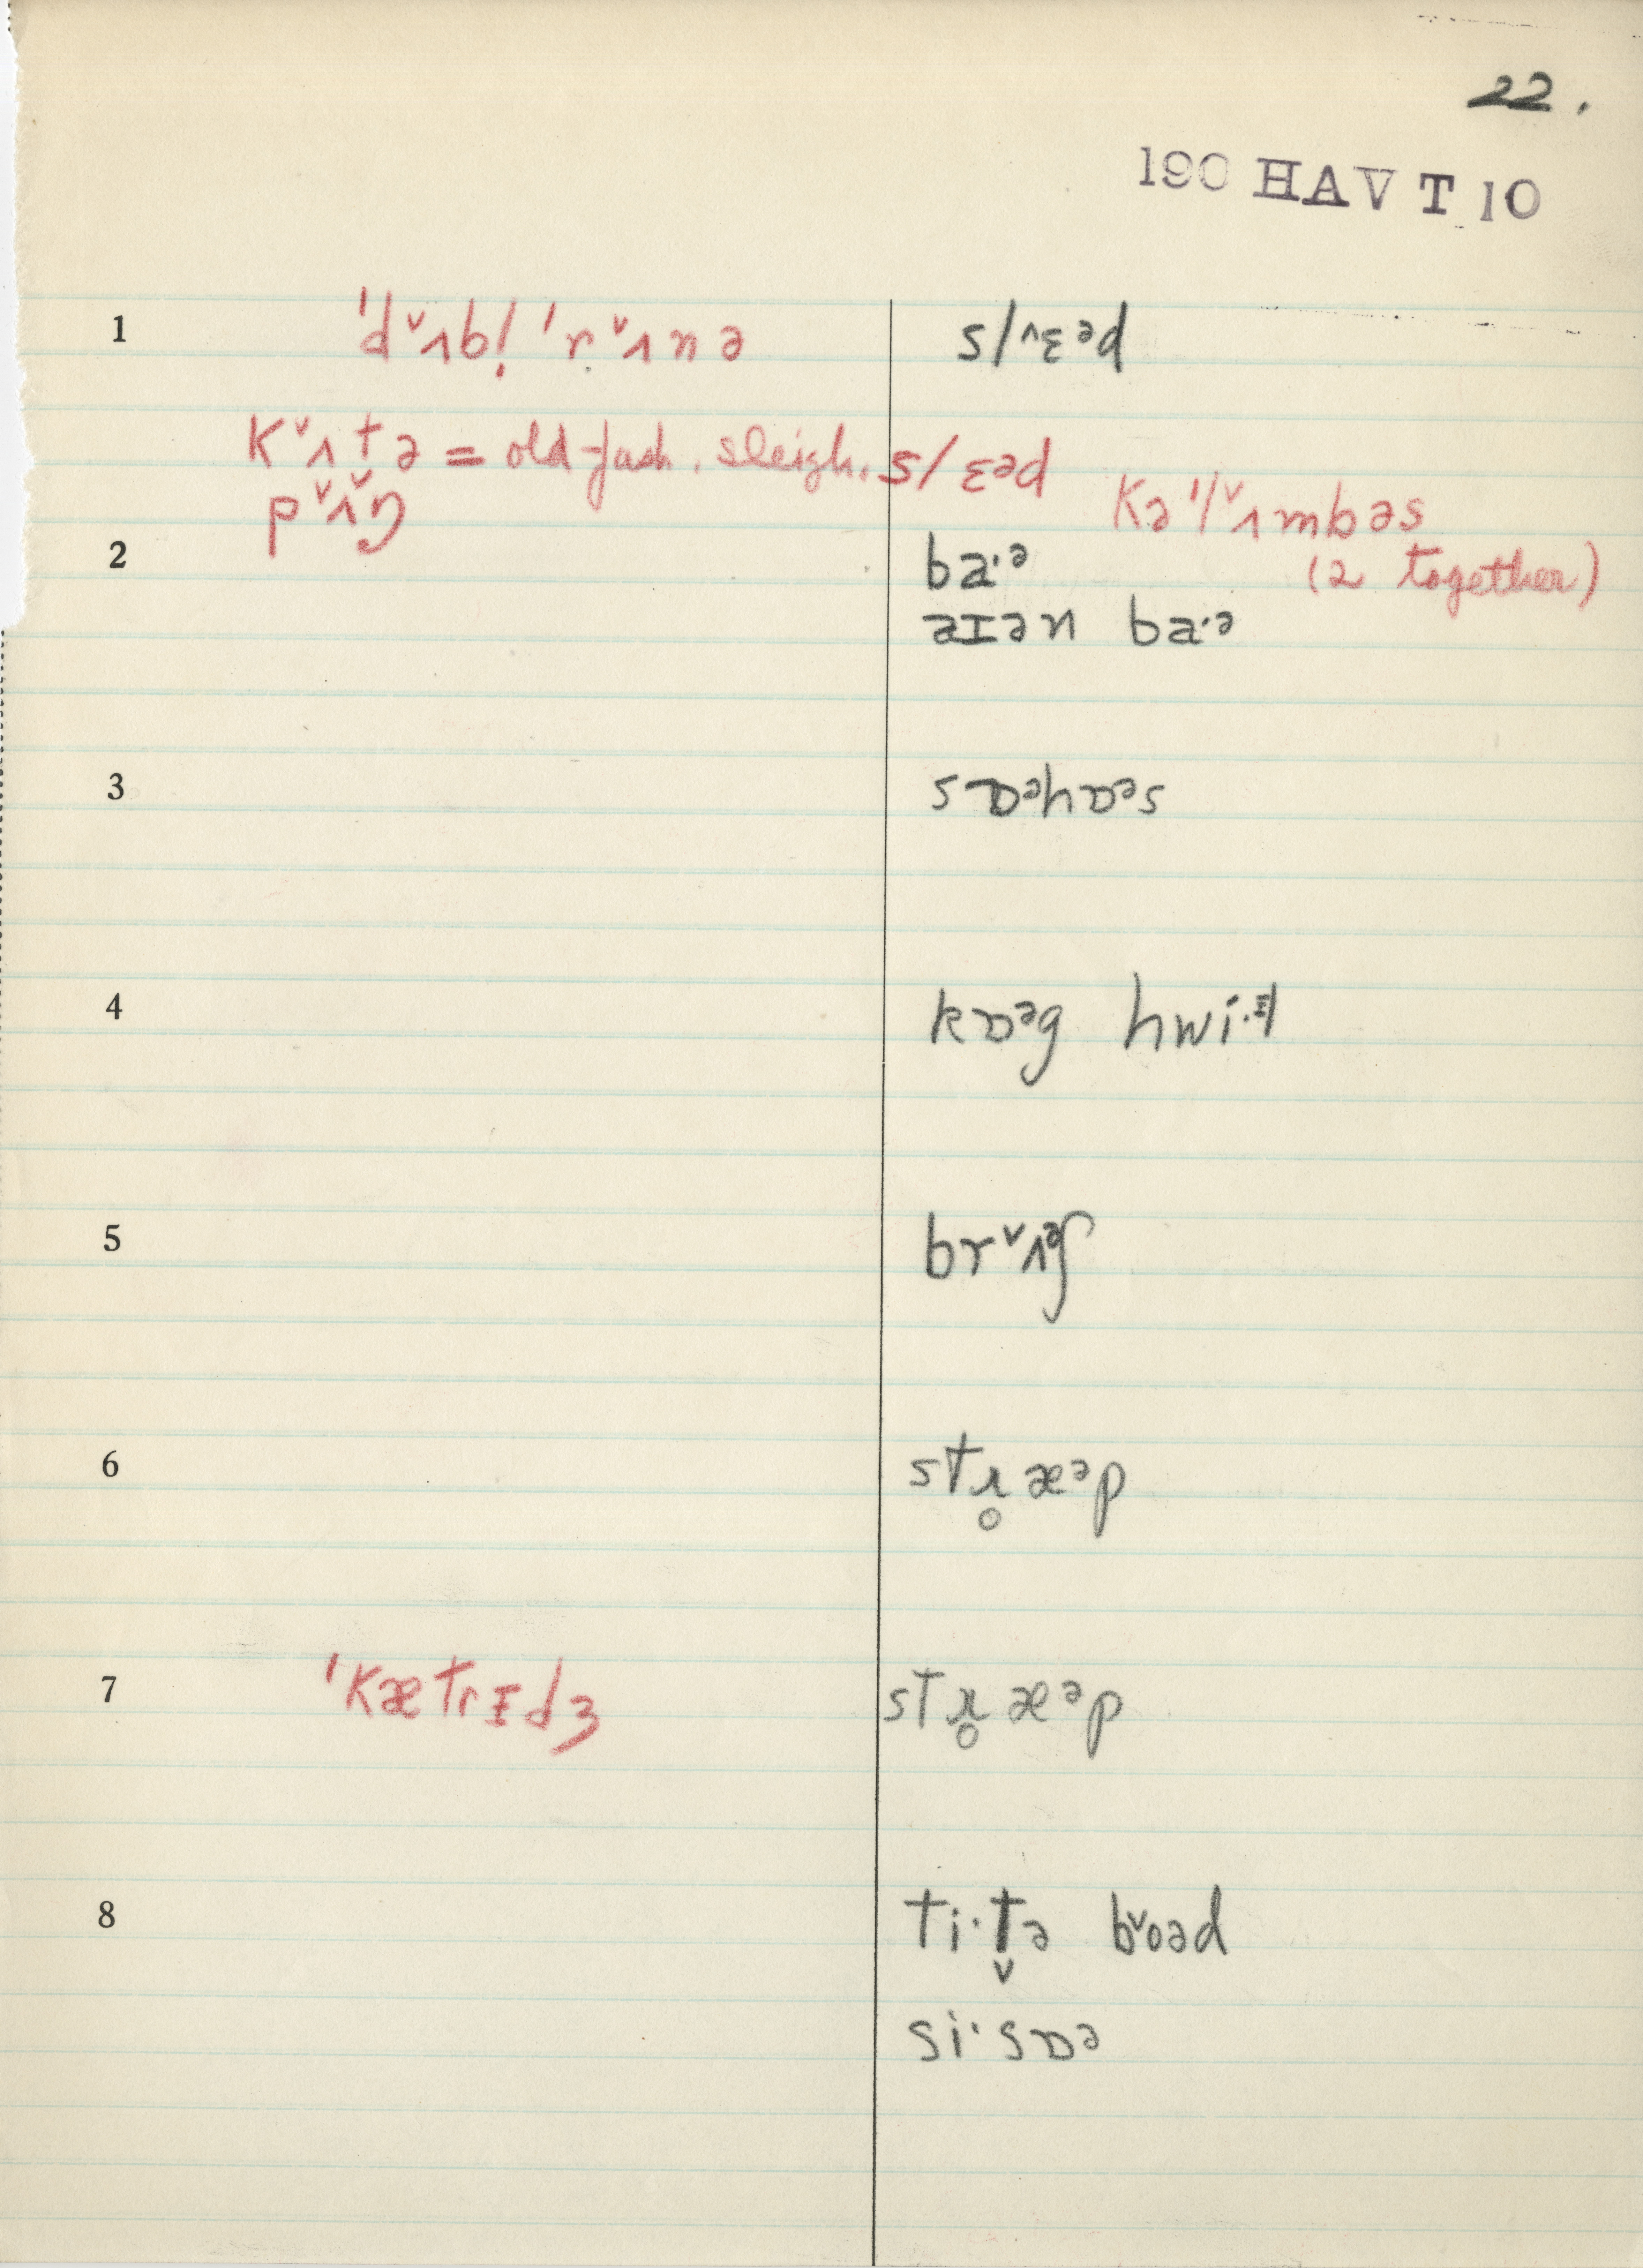 22.
190 HAV T 10
1 ˈd˅ʌbl̩ ˈr˅ʌnə sl^ɛᵊd
k˅ʌtə = old-fash. sleigh. slɛəd
p˅ʌ˅ŋ kəˈl˅ʌmbəs
2 ba·ᵊ (2 together)
aɪən ba·ᵊ
3 sɒᵊhɒᵊs
4 kɒᵊg hwi·ɫ
5 br˅ʌᵊʃ
6 stɹ̥æᵊp
7 ˈkætrɪdʒ stɹ̥æᵊp
8 ti·t̬ə b˅oəd
si·sɒə